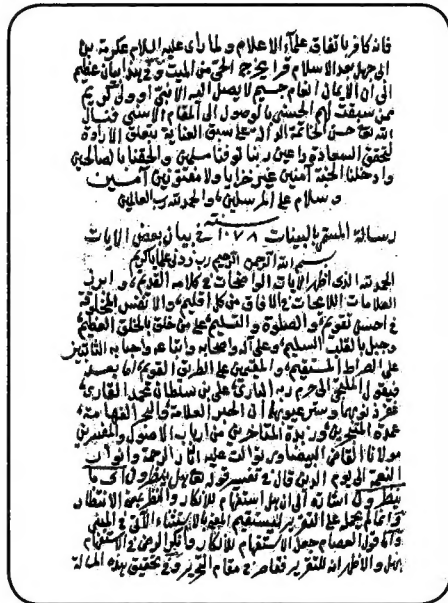 فانه كافر باتفاق علماء الاعلام ولما رأى عليه السلام عكرمة بن
ابى جهل بعد الاسلام قرأ يخرج الحى من الميت وفى هذا بيان عظيم
الى ان الايمان انعام جسيم لا يصل اليه الا نبى او ولى كريم
ممن سبقت لهم الحسنى بالوصول الى المقام الاسنى فنسأل
الله تعالى حسن الخاتمة الدالة على سبق العناية بتعلق الارادة
لتحقق السعادة داعين ربنا توفنا مسلمين والحقنا بالصالحين
وادخلنا الجنة آمنين غير خزايا ولا مفتونين آمين
وسلام على المرسلين والحمد لله رب العالمين
رسالة المسمى بالبينات سنة ١٠٧٨ فى بيان بعض الايات
بسم الله الرحمن الرحيم رب زدنى علما يا كريم
الحمد لله الذى اظهر الايات الواضحات فى كلامه القديم وابرز
العلامات اللايحات فى الافاق من كل اقليم والانفس المخلوقة
فى احسن تقويم والصلوة والتسليم على من خلق بالخلق العظيم
وجبل بالقلب السليم وعلى آله واصحابه واتباعه واحبابه الثابتين
على الصراط المستقيم والمقيمين على الطريق القويم اما بعد
فيقول الملتجى الى حرم ربه البارى على بن سلطان محمد القارى
غفر ذنوبهما وستر عيوبهما ان الحبر العلامة والبحر الفهامة
عمدة المتبحرين وزبدة المتأخرين من ارباب الاصول والمفسرين
مولانا القاضى البيضاوى توالت عليه اثار الرحمة وانوار
النعمة الى يوم الدين قال فى تفسير قوله تعالى هل ينظرون اى ما
ينتظرون اشارة الى ان هل استفهام للانكار والنظر بمعنى الانتظار
وانما لم يحمل على التقرير ليستقيم المعنى بالاستثناء الآتى فى المبنى
واما قول العصام جعل الاستفهام للانكار وانكر الرضى فى الاستفهام
بهل والاظهر انه للتقرير فقاصر فى مقام التحرير وفى تحقيق هذه المسألة